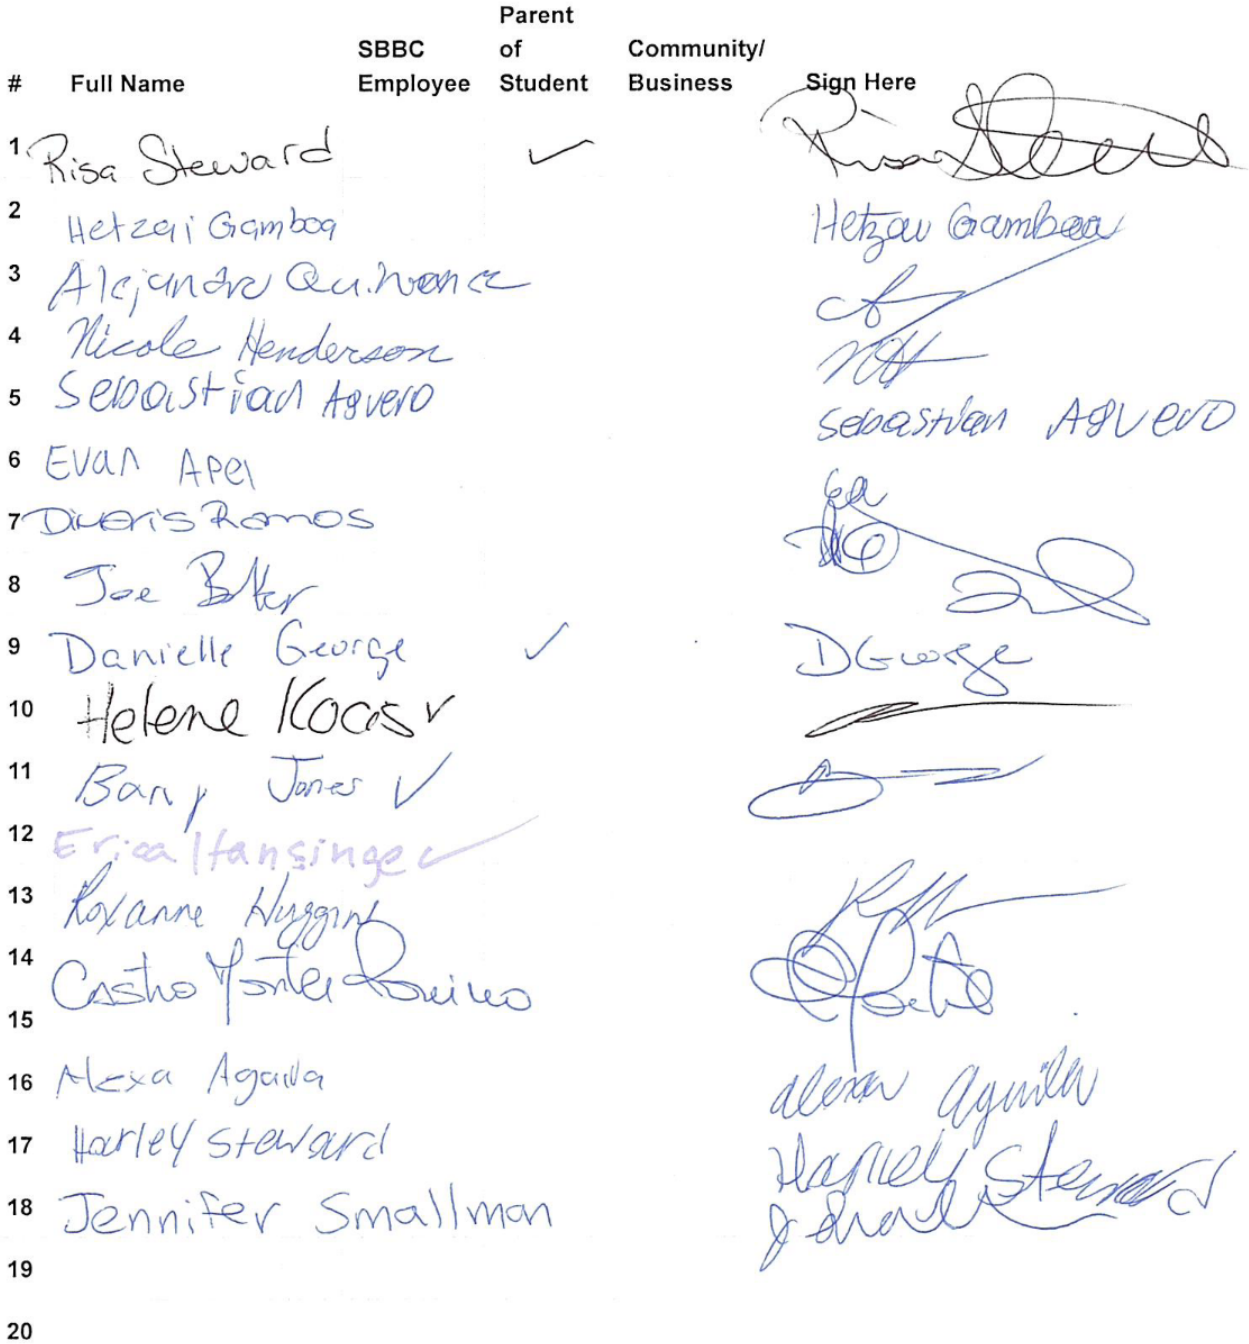 Parent
SBBC of Community/
# Full Name Employee Student Business Sign Here
1 Risa Steward ✓ Risa Steward
2 Hetzai Gamboa Hetzai Gamboa
3 Alejandra
4 Nicole Henderson NH
5 Sebastian Aguero Sebastian Aguero
6 Evan Apel EA
7 Ramos
8 Joe
9 Danielle George ✓ DGeorge
10 Helene Kocis ✓
11 Barry Jones ✓
12 Erica Hansinger ✓
13 Roxanne Huggins RH
14 Castro
15
16 Alexa Aguila Alexa Aguila
17 Harley Steward Harley Steward
18 Jennifer Smallman
19
20